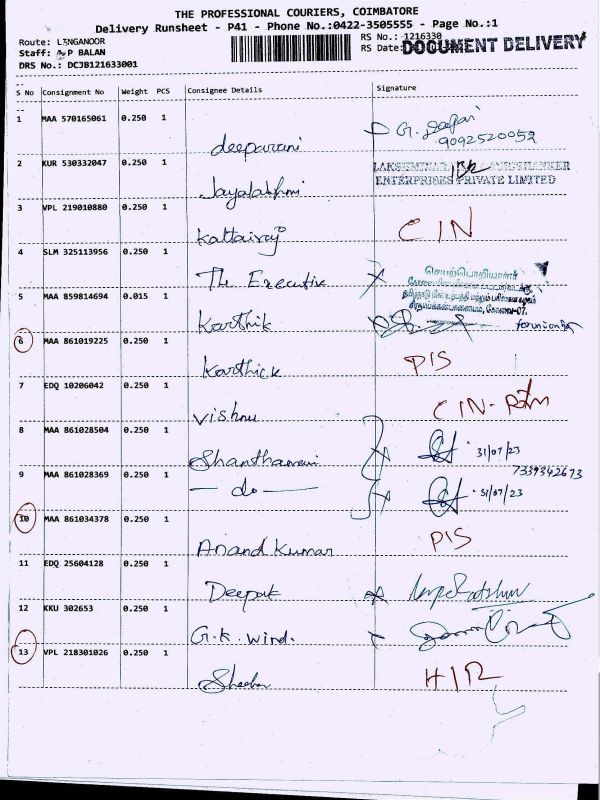 THE PROFESSIONAL COURIERS, COIMBATORE
Delivery Runsheet - P41 - Phone No.:0422-3505555 - Page No.:1
Route: LINGANOOR
Staff: P BALAN
DRS No.: DCJB121633001
RS No.: 1216330
RS Date:
DOCUMENT DELIVERY
S No Consignment No Weight PCS Consignee Details Signature
1 MAA 570165061 0.250 1
deeparani
9092520052
2 KUR 530332047 0.250 1
Jayalakhmi
ENTERPRISES PRIVATE LIMITED
3 VPL 219010880 0.250 1
Kattairaj CIN
4 SLM 325113956 0.250 1
The Executive
செயற்பொறியாளர்
5 MAA 859814694 0.015 1
Karthik
6 MAA 861019225 0.250 1
Karthick PIS
7 EDQ 10206042 0.250 1
Vishnu CIN-
8 MAA 861028504 0.250 1
Shanthamani 31/07/23
7339342673
9 MAA 861028369 0.250 1
— do — 31/07/23
10 MAA 861034378 0.250 1
Anand Kumar PIS
11 EDQ 25604128 0.250 1
Deepak
12 KKU 302653 0.250 1
G.K. Wind.
13 VPL 218301026 0.250 1